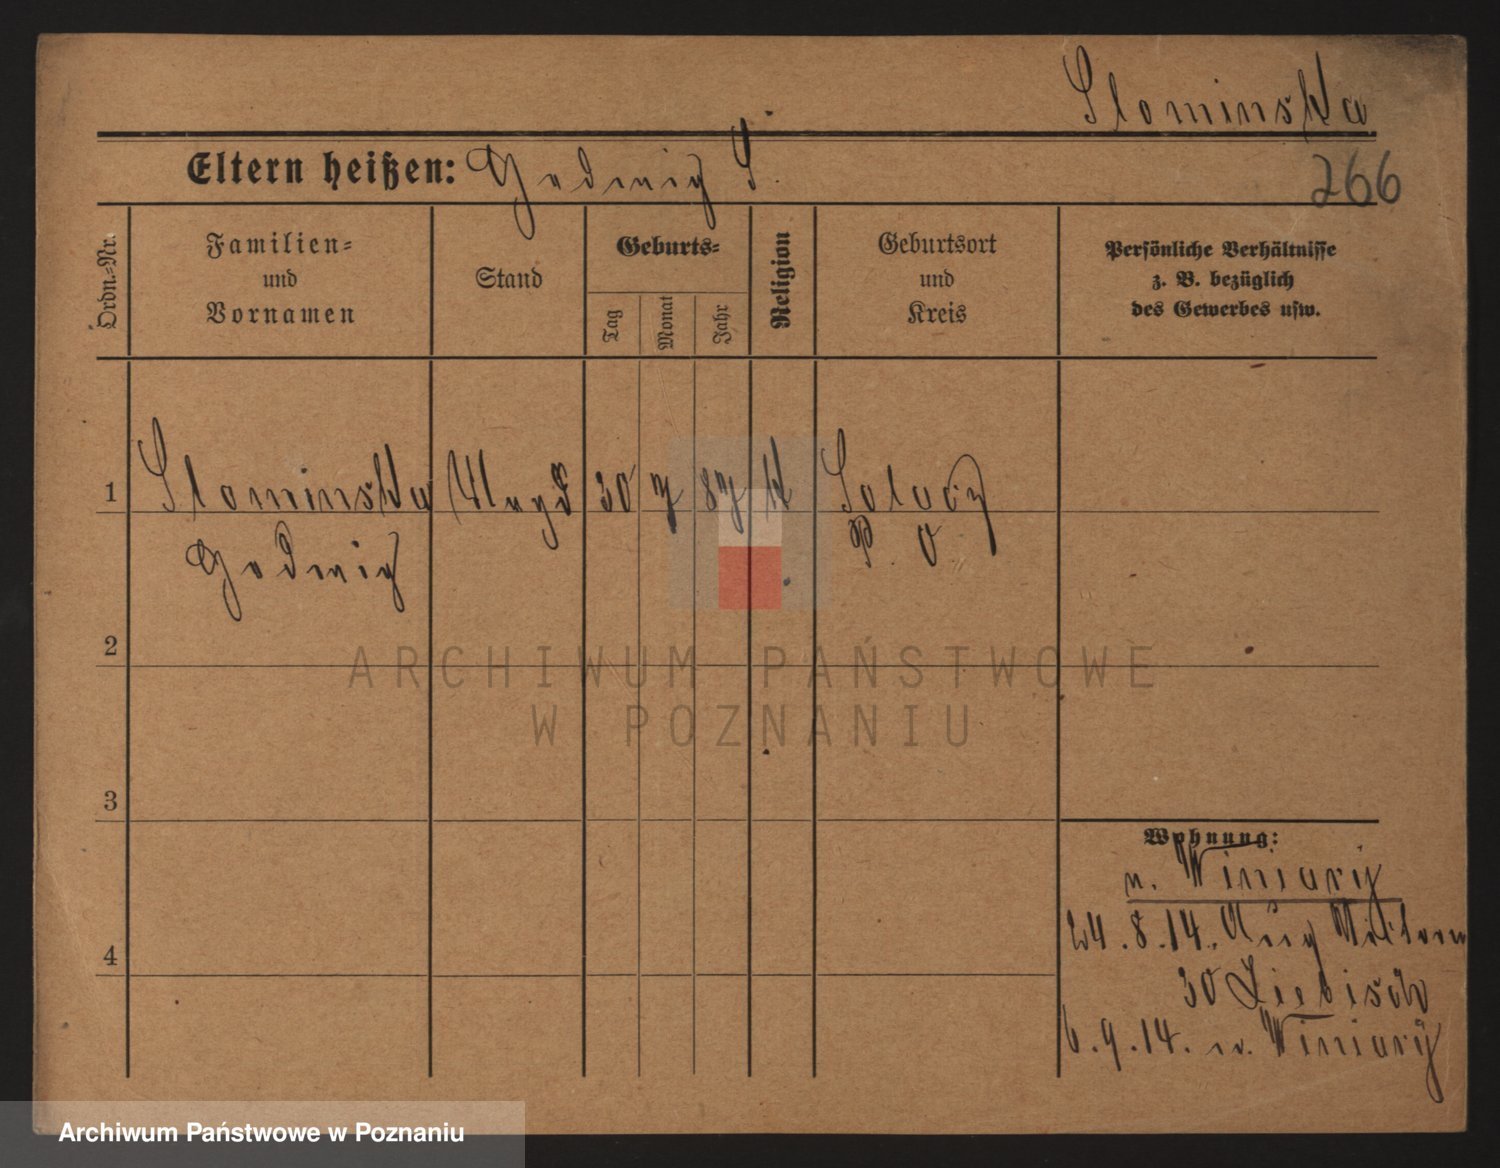 Slominska
Eltern heißen: Hedwig S.
266
Ordn.=Nr.
Familien=
und
Vornamen
Stand
Geburts=
Tag
Monat
Jahr
Religion
Geburtsort
und
Kreis
Persönliche Verhältnisse
z. B. bezüglich
des Gewerbes usw.
1 Slominska Magd 30 7 87 k Solacz
Hedwig P. O.
2
ARCHIWUM PAŃSTWOWE
W POZNANIU
3
4
Wohnung:
n. Winiary
24.8.14. Aug
30 Liebisch
6.9.14. n. Winiary
Archiwum Państwowe w Poznaniu